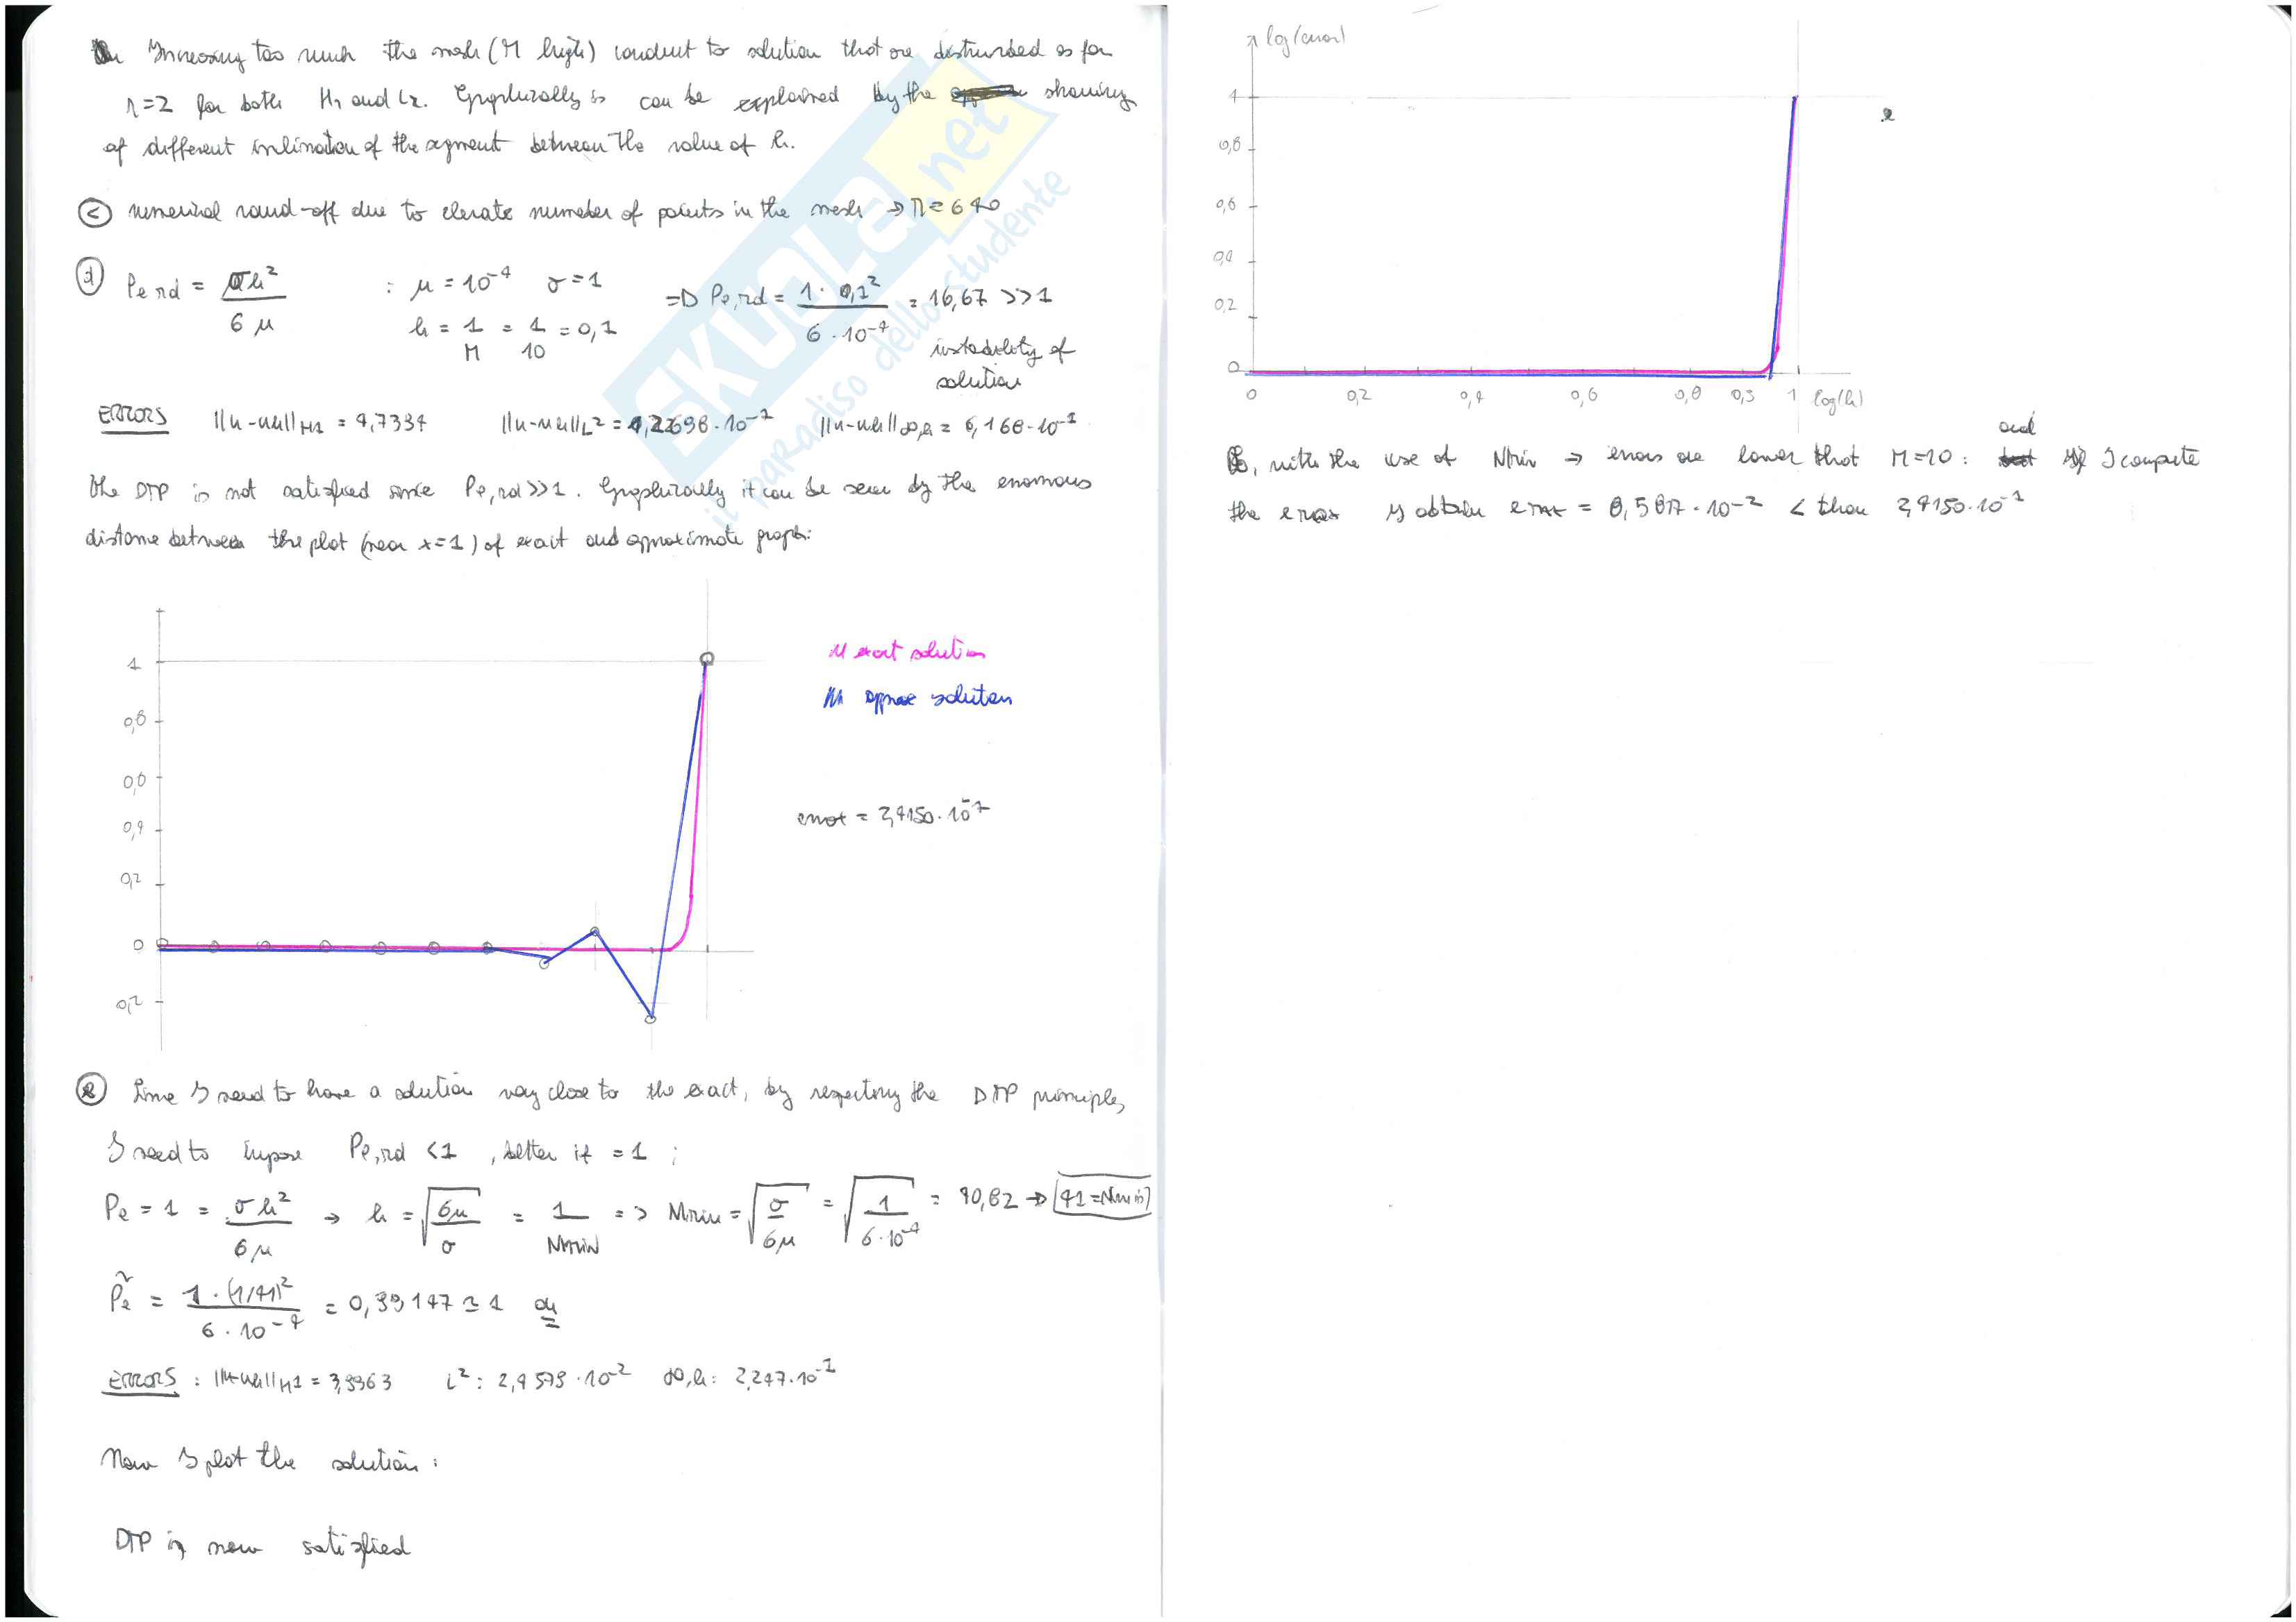 Increasing too much the mesh (M high) conduct to solution that are disturbed as for
r=2 for both H1 and L2. Graphically is can be explained by the showing
of different inclination of the segment between the value of h.
c numerical round-off due to elevate number of points in the mesh → M=640
d Pe,rd = σh²/6μ : μ = 10⁻⁴ σ = 1 h = 1/M = 1/10 = 0,1 => Pe,rd = 1·0,1²/6·10⁻⁴ = 16,67 >> 1
instability of
solution
ERRORS ||u-uh||H1 = 4,7334 ||u-uh||L² = 1,22698·10⁻¹ ||u-uh||∞,h = 6,168·10⁻¹
the DMP is not satisfied since Pe,rd >> 1. Graphically it can be seen by the enormous
distance between the plot (near x=1) of exact and approximate graph:
1
0,8
0,6
0,4
0,2
0
0,2
u exact solution
uh approx solution
emax = 2,4150·10⁻¹
e Since I need to have a solution very close to the exact, by respecting the DMP principles,
I need to impose Pe,rd < 1, better if = 1;
Pe = 1 = σh²/6μ → h = √(6μ/σ) = 1/Nmin => Mmin = √(σ/6μ) = √(1/6·10⁻⁴) = 40,82 → 41 = Nmin
P̃e = 1·(1/41)²/6·10⁻⁴ = 0,99147 ≃ 1 ok
ERRORS: ||u-uh||H1 = 3,9963 L²: 2,4579·10⁻² ∞,h: 2,247·10⁻¹
Now I plot the solution:
DMP is now satisfied
log(error)
1
0,8
0,6
0,4
0,2
0
0 0,2 0,4 0,6 0,8 0,9 1 log(h)
So, with the use of Nmin → errors are lower that M=10: and if I compute
the emax I obtain emax = 8,5017·10⁻² < than 2,4150·10⁻¹
SKUOLA.net
il paradiso dello studente